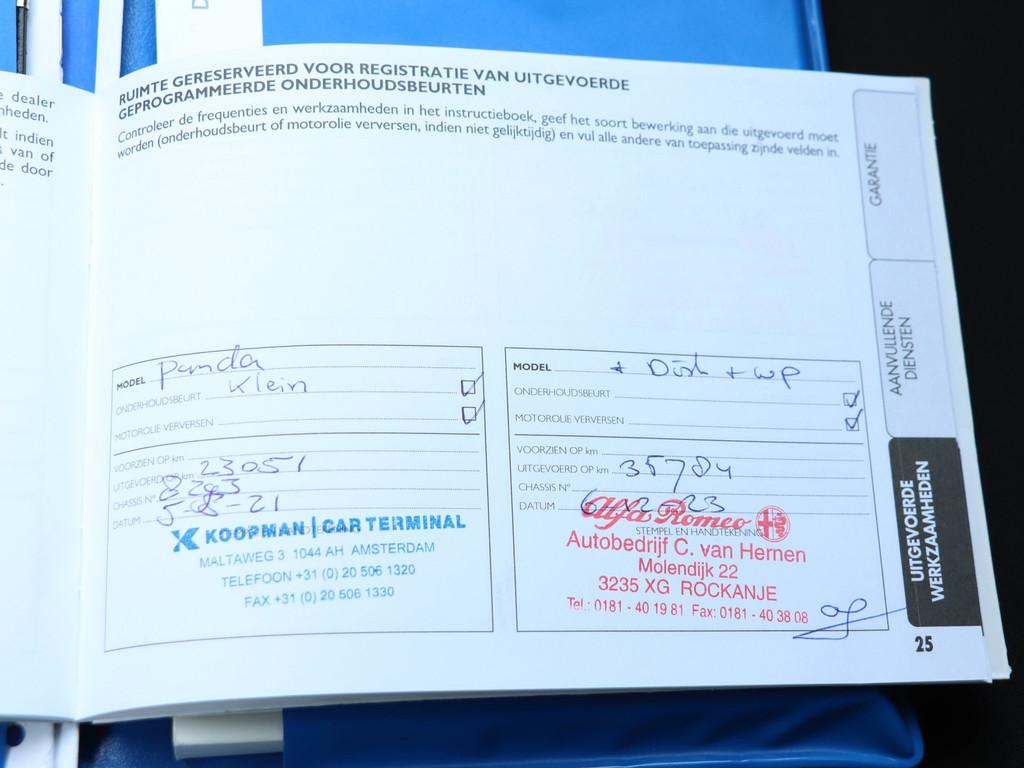 D
e dealer
nheden.
lt indien
s van of
de door
.
RUIMTE GERESERVEERD VOOR REGISTRATIE VAN UITGEVOERDE
GEPROGRAMMEERDE ONDERHOUDSBEURTEN
Controleer de frequenties en werkzaamheden in het instructieboek, geef het soort bewerking aan die uitgevoerd moet
worden (onderhoudsbeurt of motorolie verversen, indien niet gelijktijdig) en vul alle andere van toepassing zijnde velden in.
MODEL Panda
ONDERHOUDSBEURT Klein
MOTOROLIE VERVERSEN
VOORZIEN OP km
UITGEVOERD OP km 23051
CHASSIS N°
DATUM
KOOPMAN | CAR TERMINAL
MALTAWEG 3 1044 AH AMSTERDAM
TELEFOON +31 (0) 20 506 1320
FAX +31 (0) 20 506 1330
MODEL + Dish + wp
ONDERHOUDSBEURT
MOTOROLIE VERVERSEN
VOORZIEN OP km
UITGEVOERD OP km 35784
CHASSIS N°
DATUM
Alfa Romeo
STEMPEL EN HANDTEKENING
Autobedrijf C. van Hernen
Molendijk 22
3235 XG ROCKANJE
Tel.: 0181 - 40 19 81 Fax: 0181 - 40 38 08
GARANTIE
AANVULLENDE
DIENSTEN
UITGEVOERDE
WERKZAAMHEDEN
25